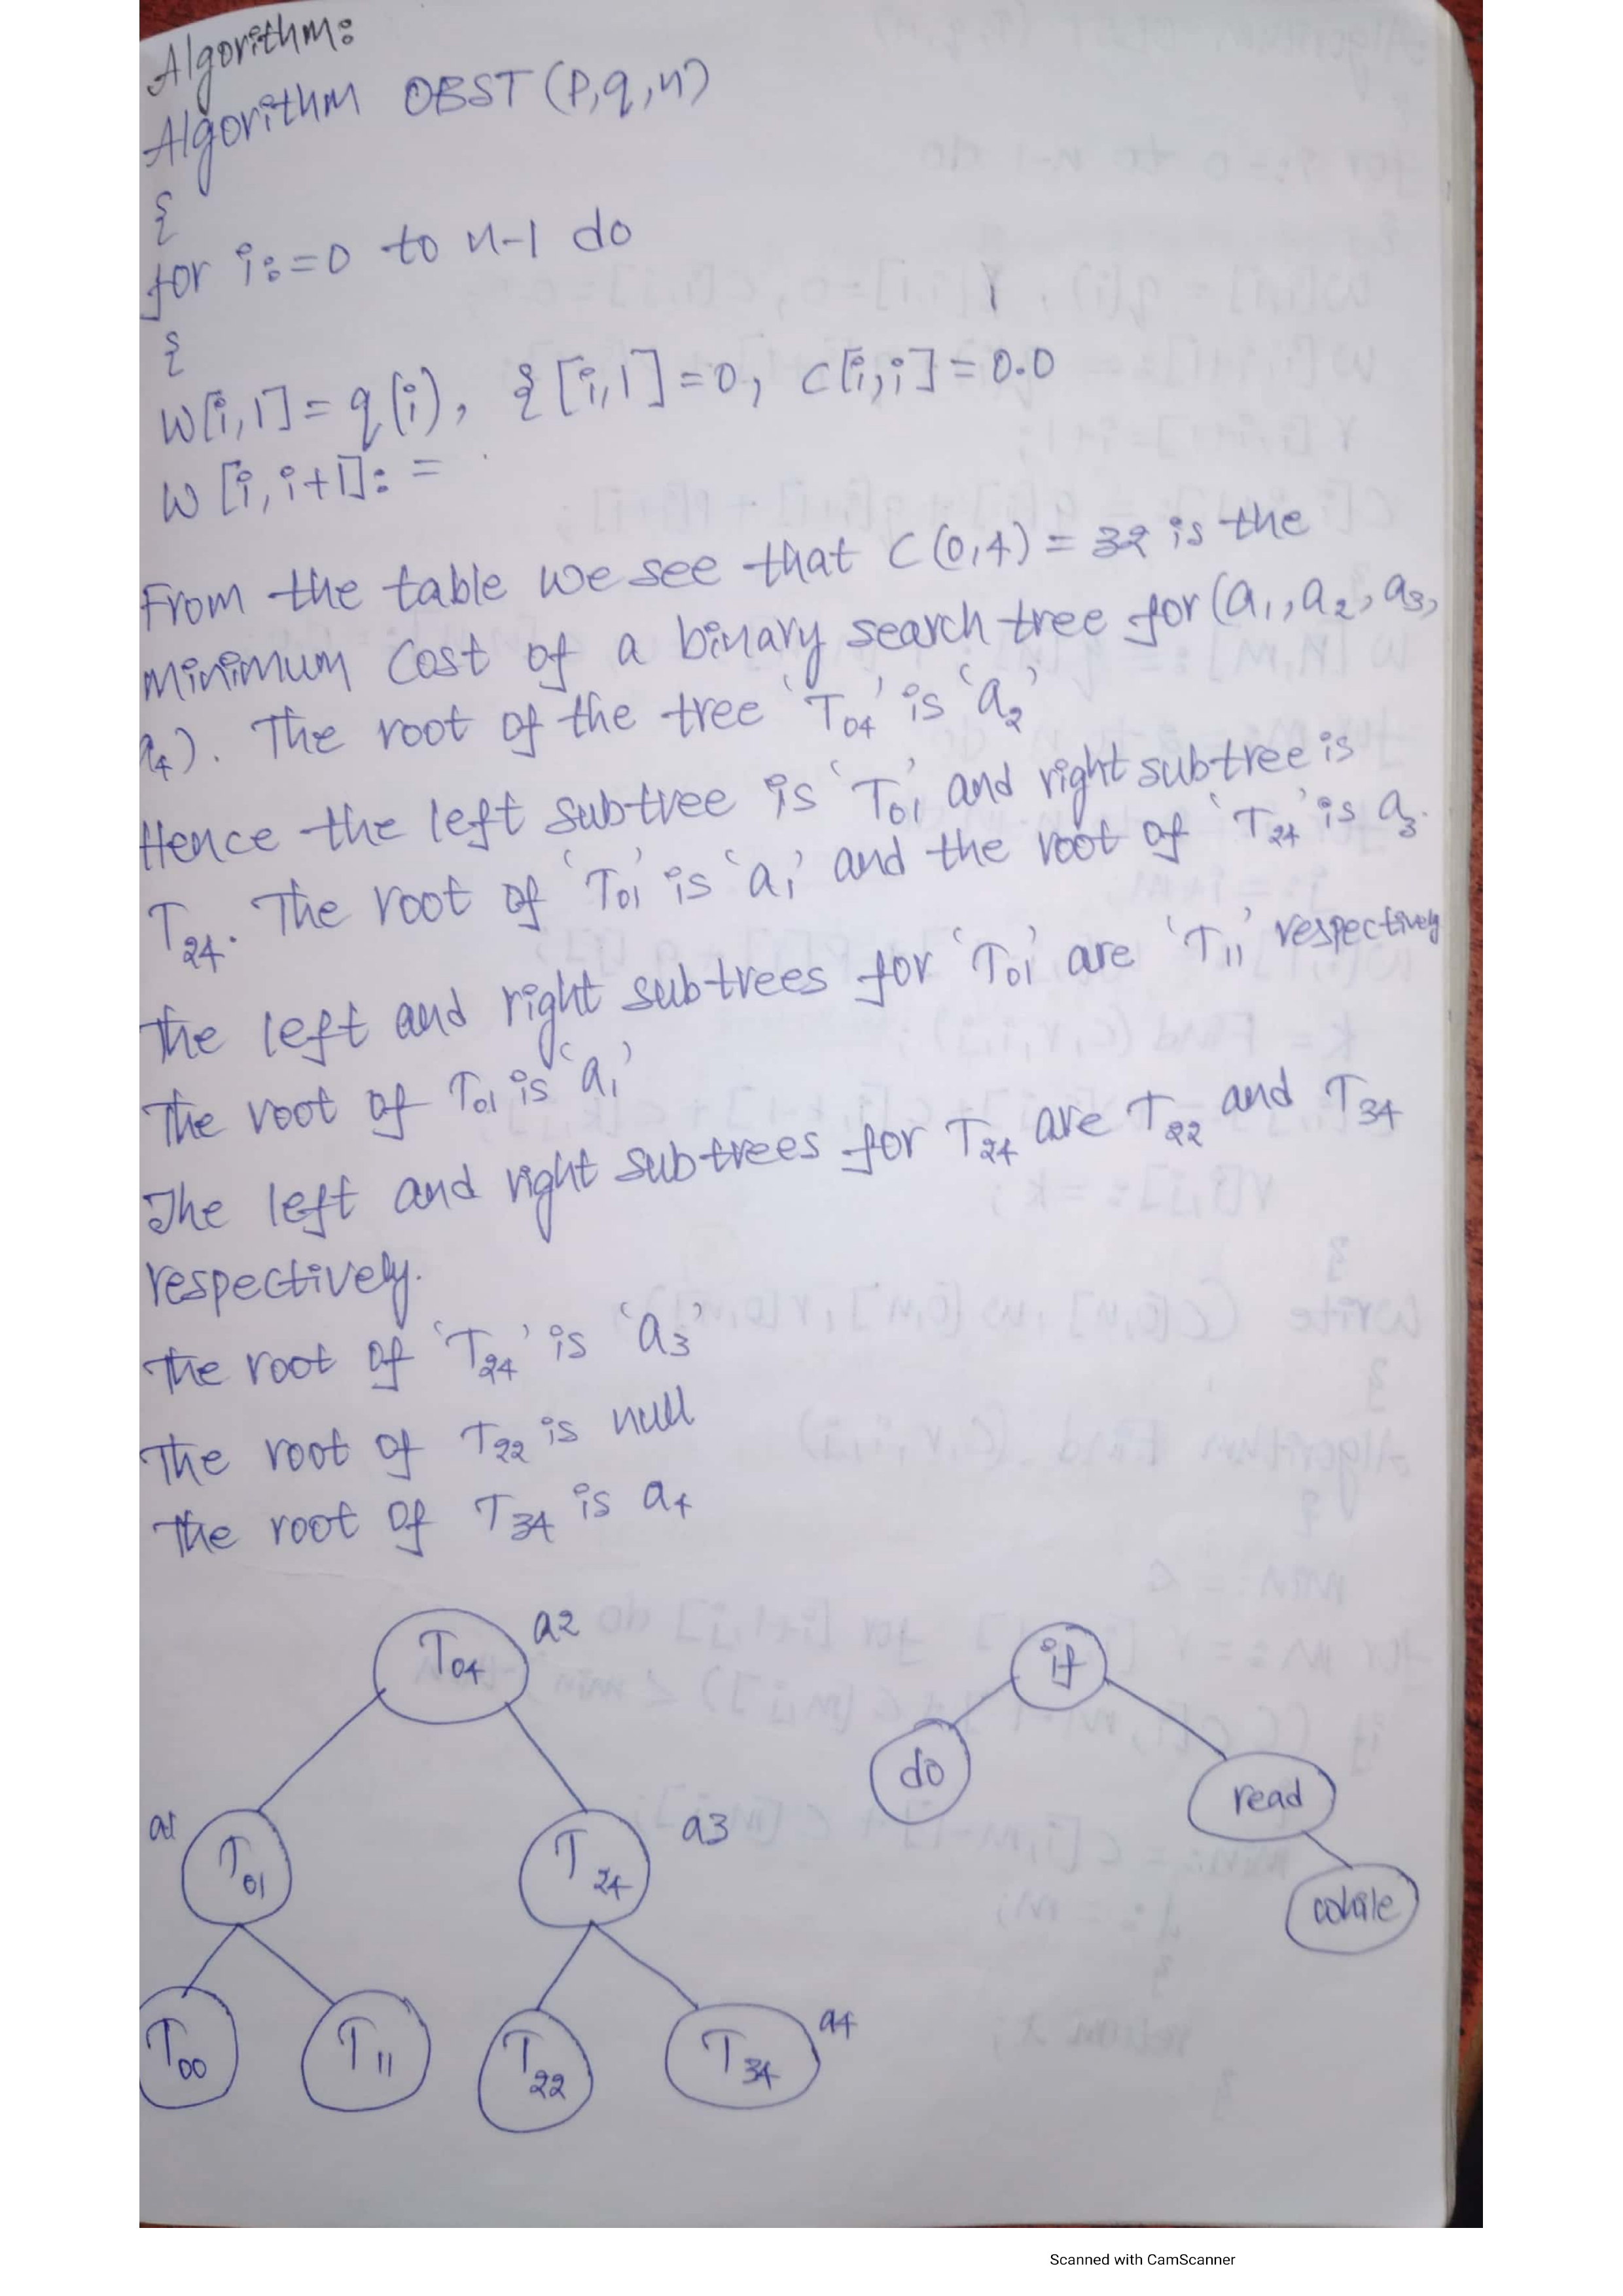 Algorithm:
Algorithm OBST (P,q,n)
{
for i:=0 to n-1 do
{
W[i,1] = q(i), {[i,1]=0, c[i,i]=0.0
W [i,i+1]: =
From the table we see that C(0,4) = 32 is the
minimum Cost of a binary search tree for (a1, a2, a3,
a4). The root of the tree 'T04' is 'a2'
Hence the left subtree is 'T01' and right subtree is
T24. The root of 'T01' is 'a1' and the root of 'T24' is a3.
The left and right subtrees for 'T01' are 'T11' respectively
The root of T01 is 'a1'
The left and right subtrees for T24 are T22 and T34
respectively.
The root of 'T24' is 'a3'
The root of T22 is null
The root of T34 is a4
T04 a2
if
do
read
while
a1 T01
T24 a3
T00
T11
T22
T34 a4
Scanned with CamScanner